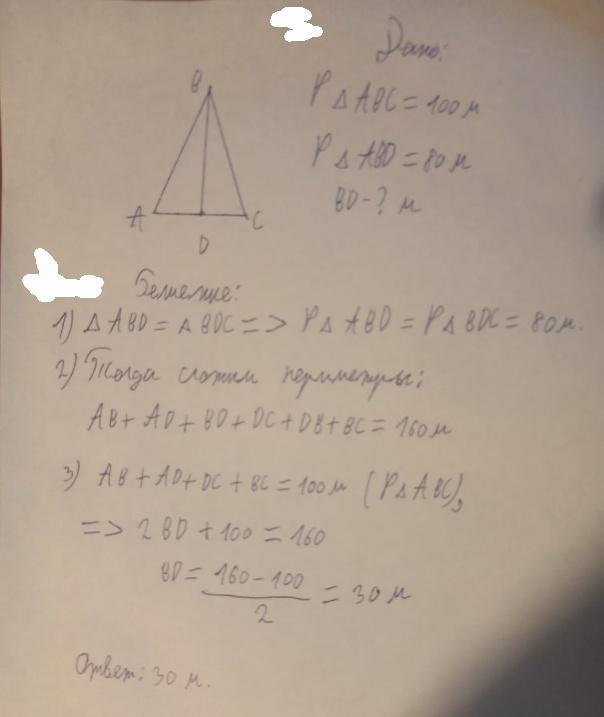 Дано:
P △ ABC = 100 м
P △ ABD = 80 м
BD - ? м
B
A
C
D
Решение:
1) △ ABD = △ BDC => P △ ABD = P △ BDC = 80 м.
2) Тогда сложим периметры:
AB + AD + BD + DC + DB + BC = 160 м
3) AB + AD + DC + BC = 100 м (P △ ABC),
=> 2 BD + 100 = 160
BD = 160 - 100 / 2 = 30 м
Ответ: 30 м.